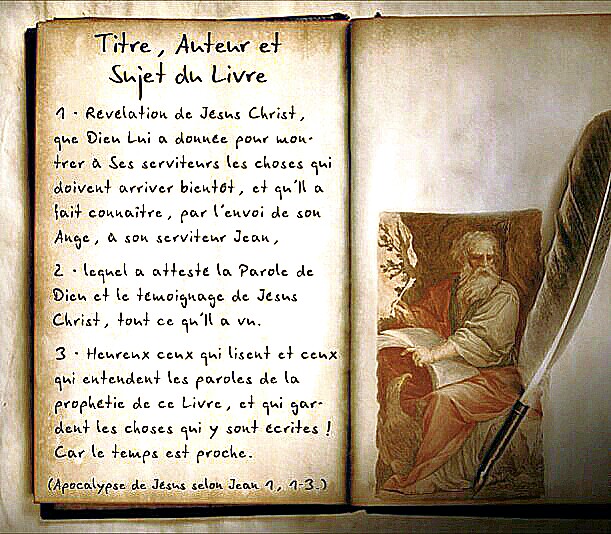 Titre, Auteur et
Sujet du Livre
1 • Révélation de Jésus Christ,
que Dieu Lui a donnée pour mon-
trer à Ses serviteurs les choses qui
doivent arriver bientôt, et qu'Il a
fait connaître, par l'envoi de son
Ange, à son serviteur Jean,
2 • lequel a attesté la Parole de
Dieu et le témoignage de Jésus
Christ, tout ce qu'Il a vu.
3 • Heureux ceux qui lisent et ceux
qui entendent les paroles de la
prophétie de ce Livre, et qui gar-
dent les choses qui y sont écrites !
Car le temps est proche.
(Apocalypse de Jésus selon Jean 1, 1-3.)